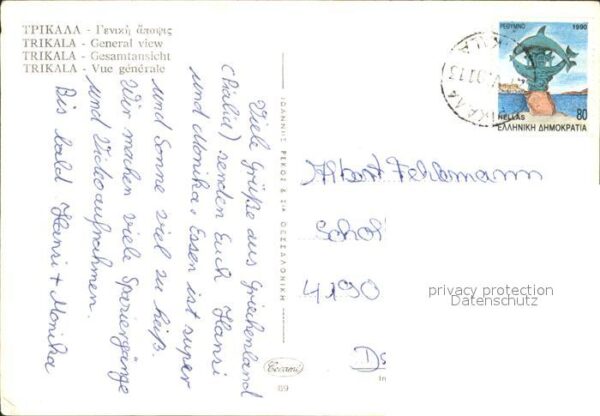 ΤΡΙΚΑΛΑ - Γενικὴ ἄποψις
TRIKALA - General view
TRIKALA - Gesamtansicht
TRIKALA - Vue générale
Viele Grüße aus Griechenland
senden Euch Hansi
und Monika. Essen ist super
und Sonne viel zu heiß.
Wir machen viele Spaziergänge
und Videoaufnahmen.
Bis bald Hansi + Monika
ΙΩΑΝΝΗΣ ΡΕΚΟΣ & ΣΙΑ ΘΕΣΣΑΛΟΝΙΚΗ
89
ΡΕΘΥΜΝΟ 1990
HELLAS 80
ΕΛΛΗΝΙΚΗ ΔΗΜΟΚΡΑΤΙΑ
Albert
4190
privacy protection
Datenschutz